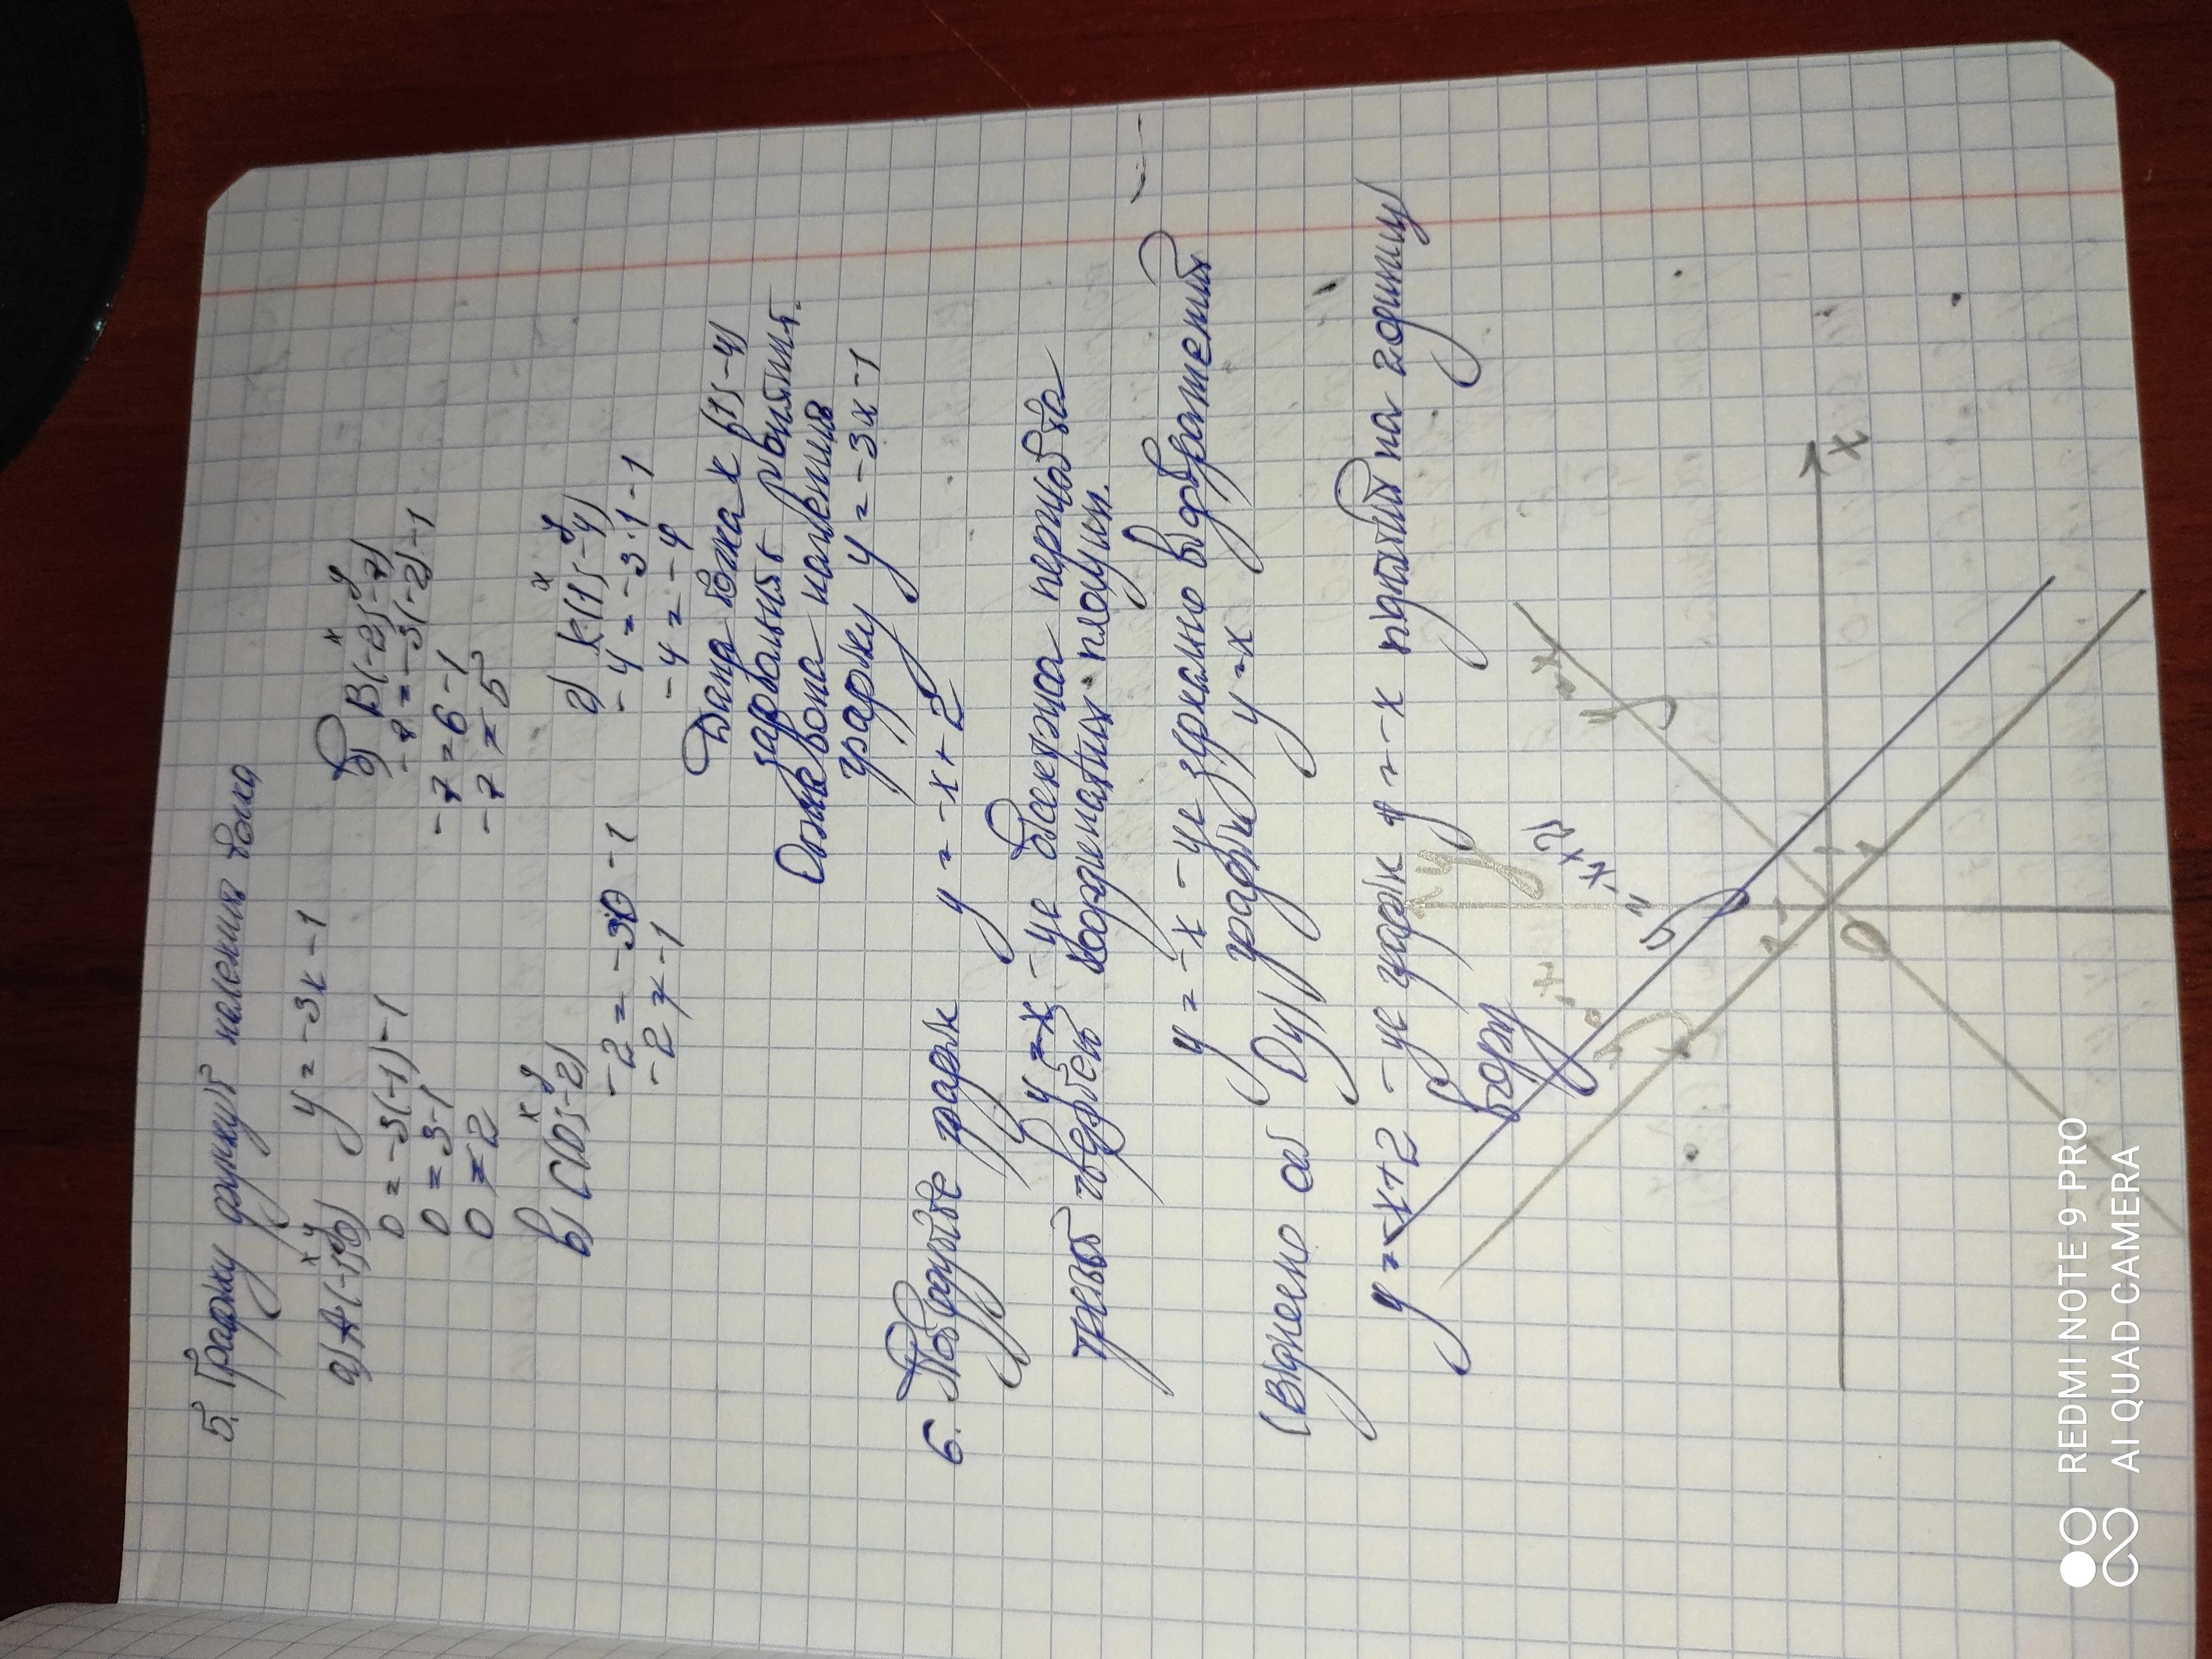 5. Графіку функції належить точка
y = -3x - 1
а) A(-1; 0)
x y
0 = -3(-1) - 1
0 = 3 - 1
0 ≠ 2
б) B(-2; -7)
x y
-7 = -3(-2) - 1
-7 = 6 - 1
-7 ≠ 5
в) C(0; -2)
x y
-2 = -3·0 - 1
-2 ≠ -1
г) K(1; -4)
x y
-4 = -3·1 - 1
-4 = -4
Дана точка K(1; -4)
рівняння.
Отже вона належить
графіку y = -3x - 1
6. Побудуйте графік y = -x + 2
y = x - це бісектриса першої та
третьої чвертей координатної площин.
y = -x - це зеркальне відображення
(відносно осі Oy) графіку y = x
y = -x + 2 - це графік y = -x піднятий на 2 одиниці
вгору
y
x
0
y = x
y = -x
y = -x + 2
REDMI NOTE 9 PRO
AI QUAD CAMERA